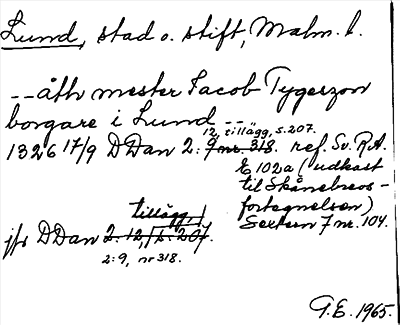 Lund, stad o. stift, Malm. l.
-- åth mester Jacob Tygerszon
borgare i Lund --
12, tillägg, s. 207.
1326 17/9 DDan 2: 9 nr. 318. ref. Sv. R.A.
E 102a (udkast
til Skånebrevs-
fortegnelsen)
Sextern 7 nr. 104.
tillägg,
jfr DDan 2: 12, s. 207.
2: 9, nr 318.
G.E. 1965.